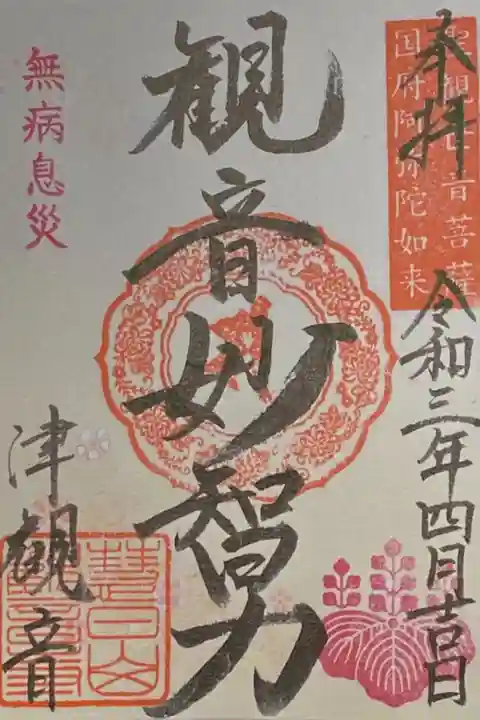 聖観世音菩薩
国府阿弥陀如来
奉拝
令和三年四月吉日
観音妙智力
無病息災
津観音